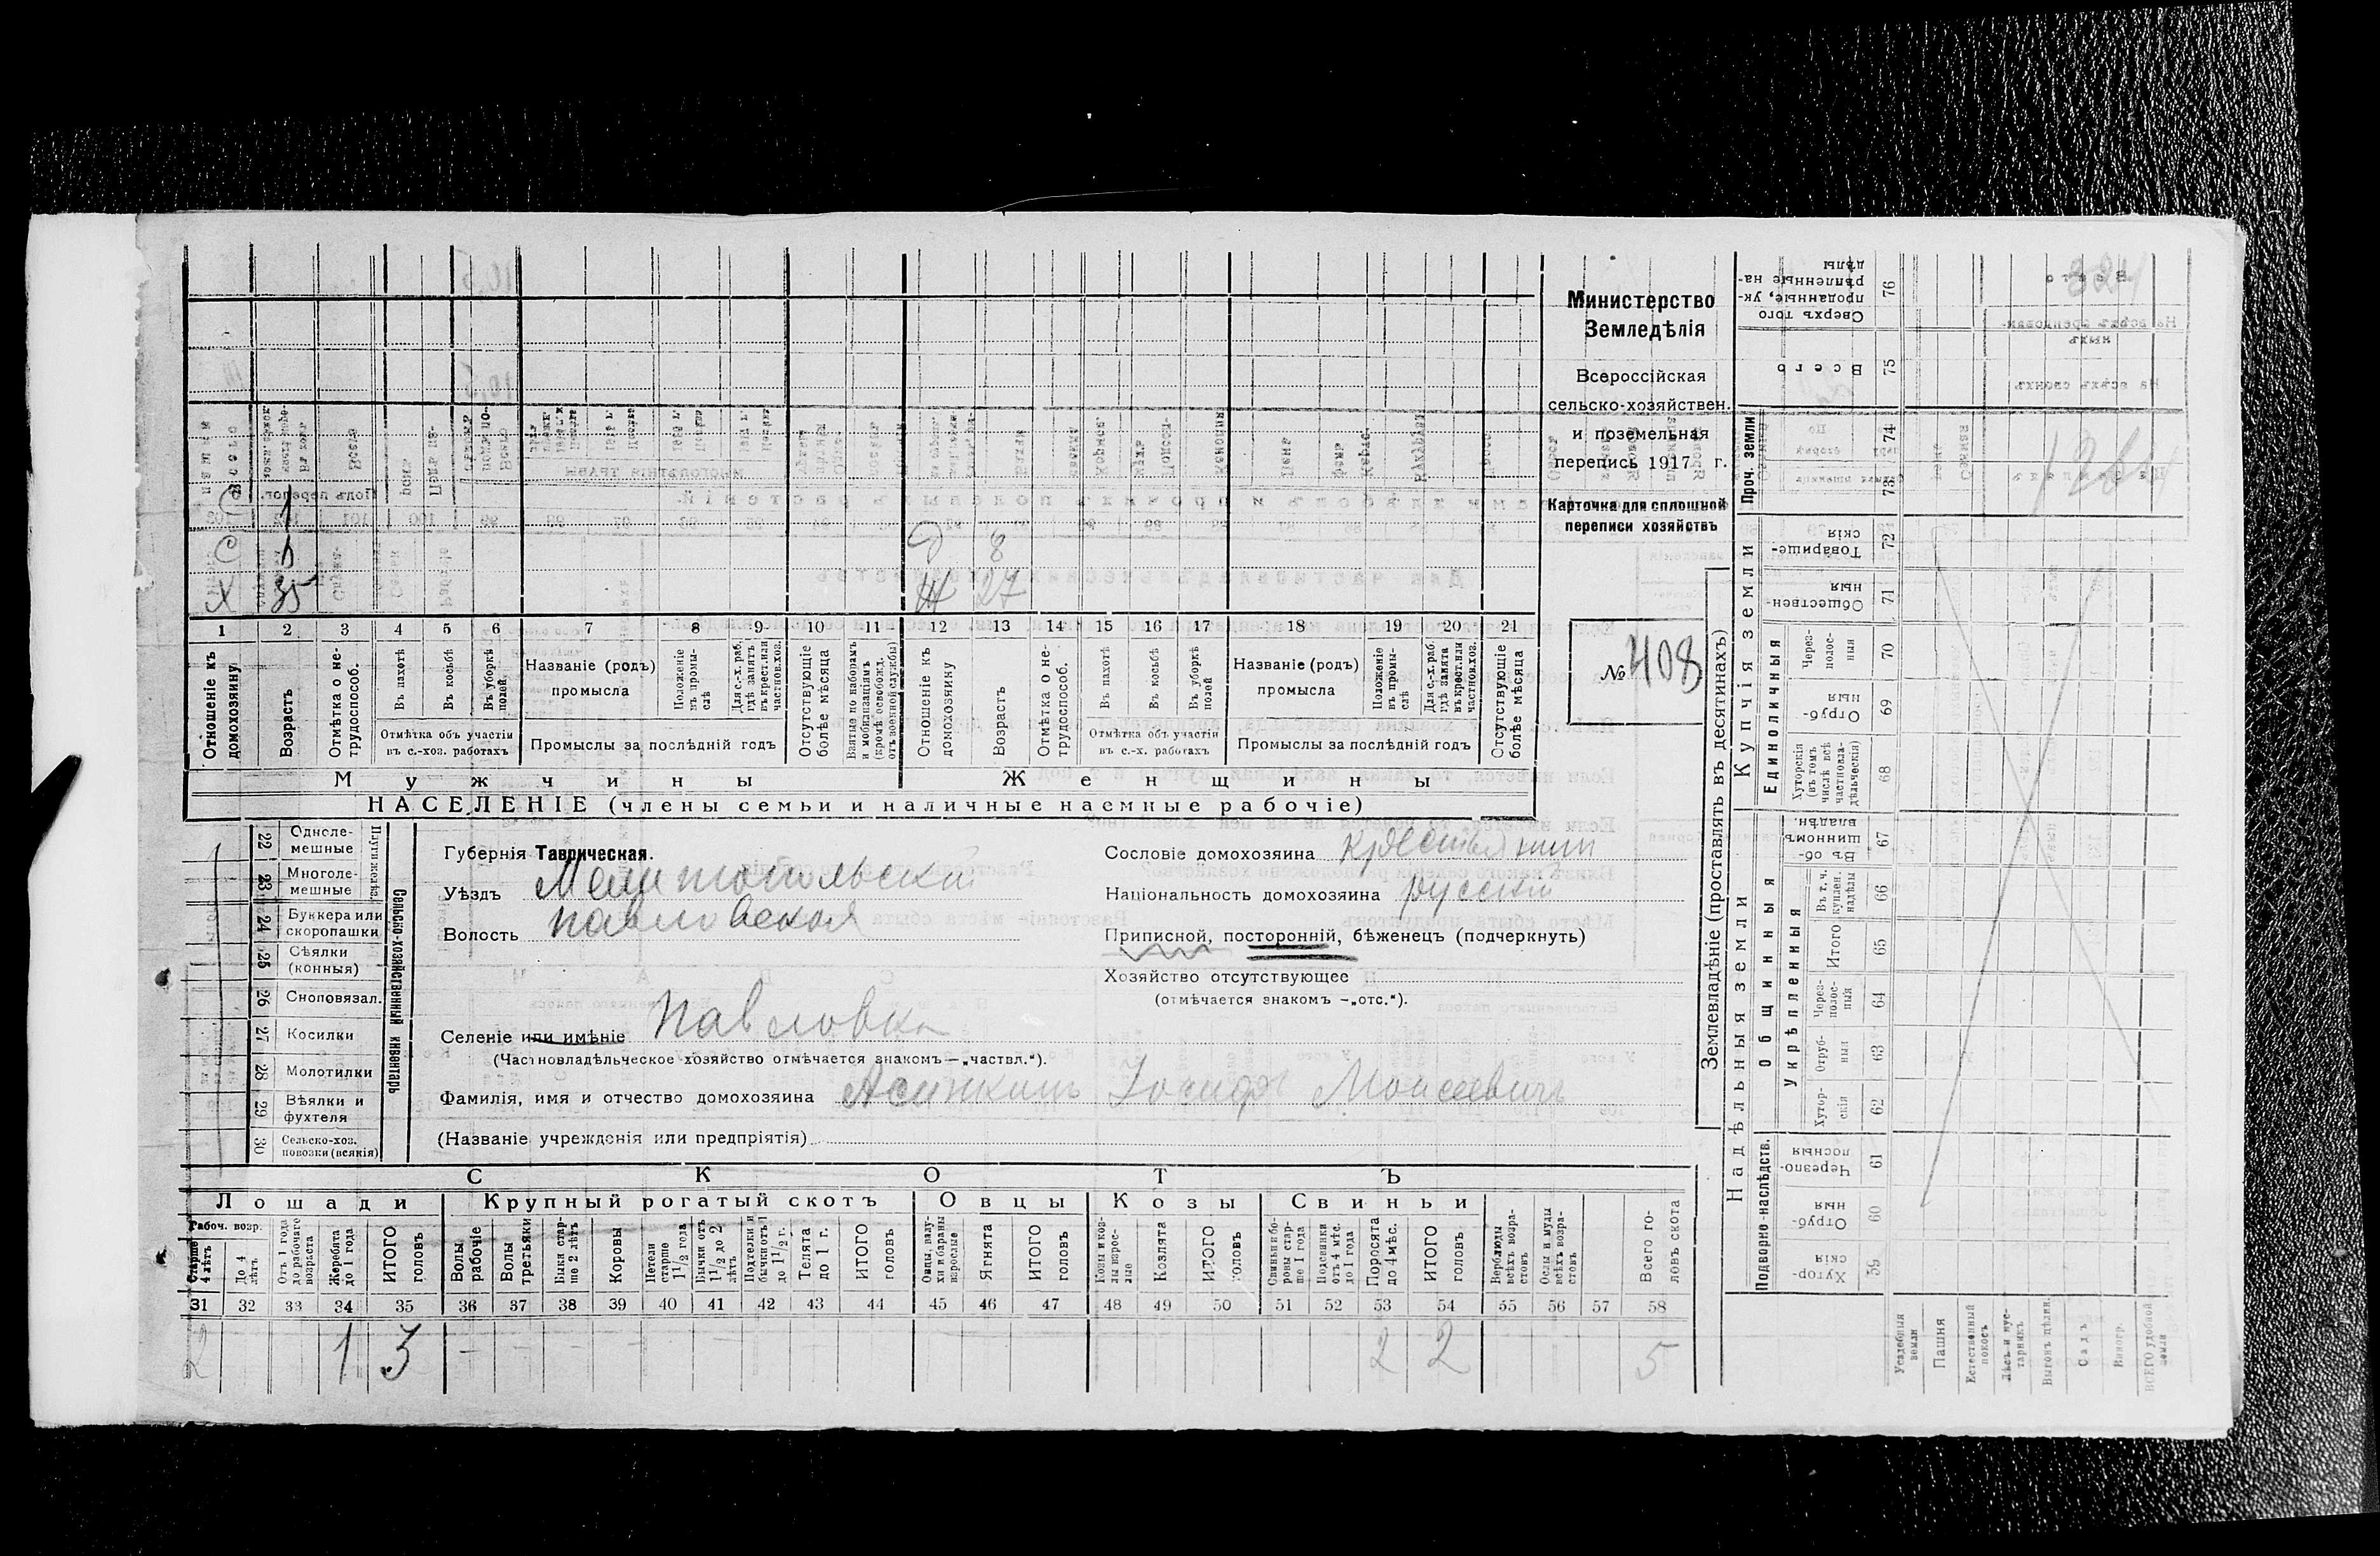 Министерство
Земледѣлія
Всероссійская
сельско-хозяйствен.
и поземельная
перепись 1917 г.
Карточка для сплошной
переписи хозяйствъ
№ 408
С 1
С 6 Д 8
Х 35 Ж 27
1 2 3 4 5 6 7 8 9 10 11 12 13 14 15 16 17 18 19 20 21
Отношеніе къ домохозяину
Возрастъ
Отмѣтка о не-трудоспособ.
Въ пахотѣ
Въ косьбѣ
Въ уборкѣ полей.
Отмѣтка объ участіи въ с.-хоз. работахъ
Названіе (родъ) промысла
Положеніе въ промы-слѣ
Для с.-х. раб. гдѣ занятъ въ крест. или частнов. хоз.
Промыслы за послѣдній годъ
Отсутствующіе болѣе мѣсяца
Взятые по наборамъ и мобилизаціямъ (кромѣ освобожд. отъ военной службы)
Отношеніе къ домохозяину
Возрастъ
Отмѣтка о не-трудоспособ.
Въ пахотѣ
Въ косьбѣ
Въ уборкѣ полей
Отмѣтка объ участіи въ с.-х. работахъ
Названіе (родъ) промысла
Положеніе въ промы-слѣ
Для с.-х. раб. гдѣ занята въ крест. или частнов. хоз.
Промыслы за послѣдній годъ
Отсутствующіе болѣе мѣсяца
Мужчины Женщины
НАСЕЛЕНІЕ (члены семьи и наличные наемные рабочіе)
Сельско-хозяйственный инвентарь
22 Одноле-мешные
23 Многоле-мешные
24 Буккера или скоропашки
25 Сѣялки (конныя)
26 Сноповязал.
27 Косилки
28 Молотилки
29 Вѣялки и фухтеля
30 Сельско-хоз. повозки (всякія)
Губернія Таврическая.
Уѣздъ Мелитопольскій
Волость Павловская
Сословіе домохозяина крестьянин
Національность домохозяина русскій
Приписной, посторонній, бѣженецъ (подчеркнуть)
Хозяйство отсутствующее
(отмѣчается знакомъ —„отс.“).
Селеніе или имѣніе Павловка
(Частновладѣльческое хозяйство отмѣчается знакомъ—„частвл.“).
Фамилія, имя и отчество домохозяина Іосифъ Моисеевичъ
(Названіе учрежденія или предпріятія)
СКОТЪ
Лошади Крупный рогатый скотъ Овцы Козы Свиньи
Рабоч. возр.
Старше 4 лѣтъ
До 4 лѣтъ
Отъ 1 года до рабочаго возраста
Жеребята до 1 года
ИТОГО головъ
Волы рабочіе
Волы третьяки
Быки стар-ше 2 лѣтъ
Коровы
Нетели старше 1 1/2 года
Бычки отъ 1 1/2 до 2 лѣтъ
Подтелки и бычки отъ 1 до 1 1/2 г.
Телята до 1 г.
ИТОГО головъ
Овцы, валу-хи и бараны взрослые
Ягнята
ИТОГО головъ
Козы и коз-лы взрос-лые
Козлята
ИТОГО головъ
Свиньи и бо-ровы стар-ше 1 года
Подсвинки отъ 4 мѣс. до 1 года
Поросята до 4 мѣс.
ИТОГО головъ
Верблюды всѣхъ возра-стовъ
Ослы и мулы всѣхъ возра-стовъ
Всего го-ловъ скота
31 32 33 34 35 36 37 38 39 40 41 42 43 44 45 46 47 48 49 50 51 52 53 54 55 56 57 58
2 1 3 – – – – – 2 2 5
Землевладѣніе (проставлять въ десятинахъ)
Сверхъ того проданные, ук-рѣпленные на-дѣлы 76
Всего 75
Проч. земли 74 73
Купчія земли
Товарище-скія 72
Обществен-ныя 71
Единоличныя
Через-полос-ныя 70
Отруб-ныя 69
Хуторскія (въ томъ числѣ всѣ частновла-дѣльческія) 68
Надѣльныя земли
Общинныя
Въ об-щинномъ владѣн. 67
Укрѣпленныя
Въ т. ч. куплен. надѣлы 66
Итого 65
Через-полос-ныя 64
Отруб-ныя 63
Хутор-скія 62
Подворно-наслѣдств.
Черезпо-лосныя 61
Отруб-ныя 60
Хутор-скія 59
Усадебныя земли
Пашня
Естественный покосъ
Лѣсъ и кус-тарникъ
Выгонъ цѣлин.
Садъ
Виногр.
ВСЕГО удобной земли